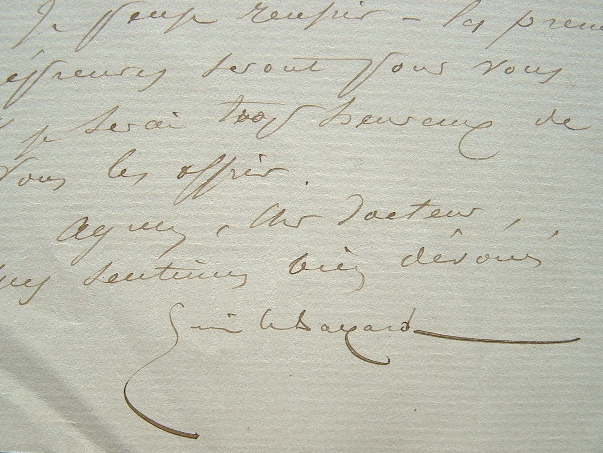 Je pense réussir – les prem
épreuves seront pour vous
je serai trop heureux de
vous les offrir.
Agréez, cher Docteur,
mes sentiments bien dévoués